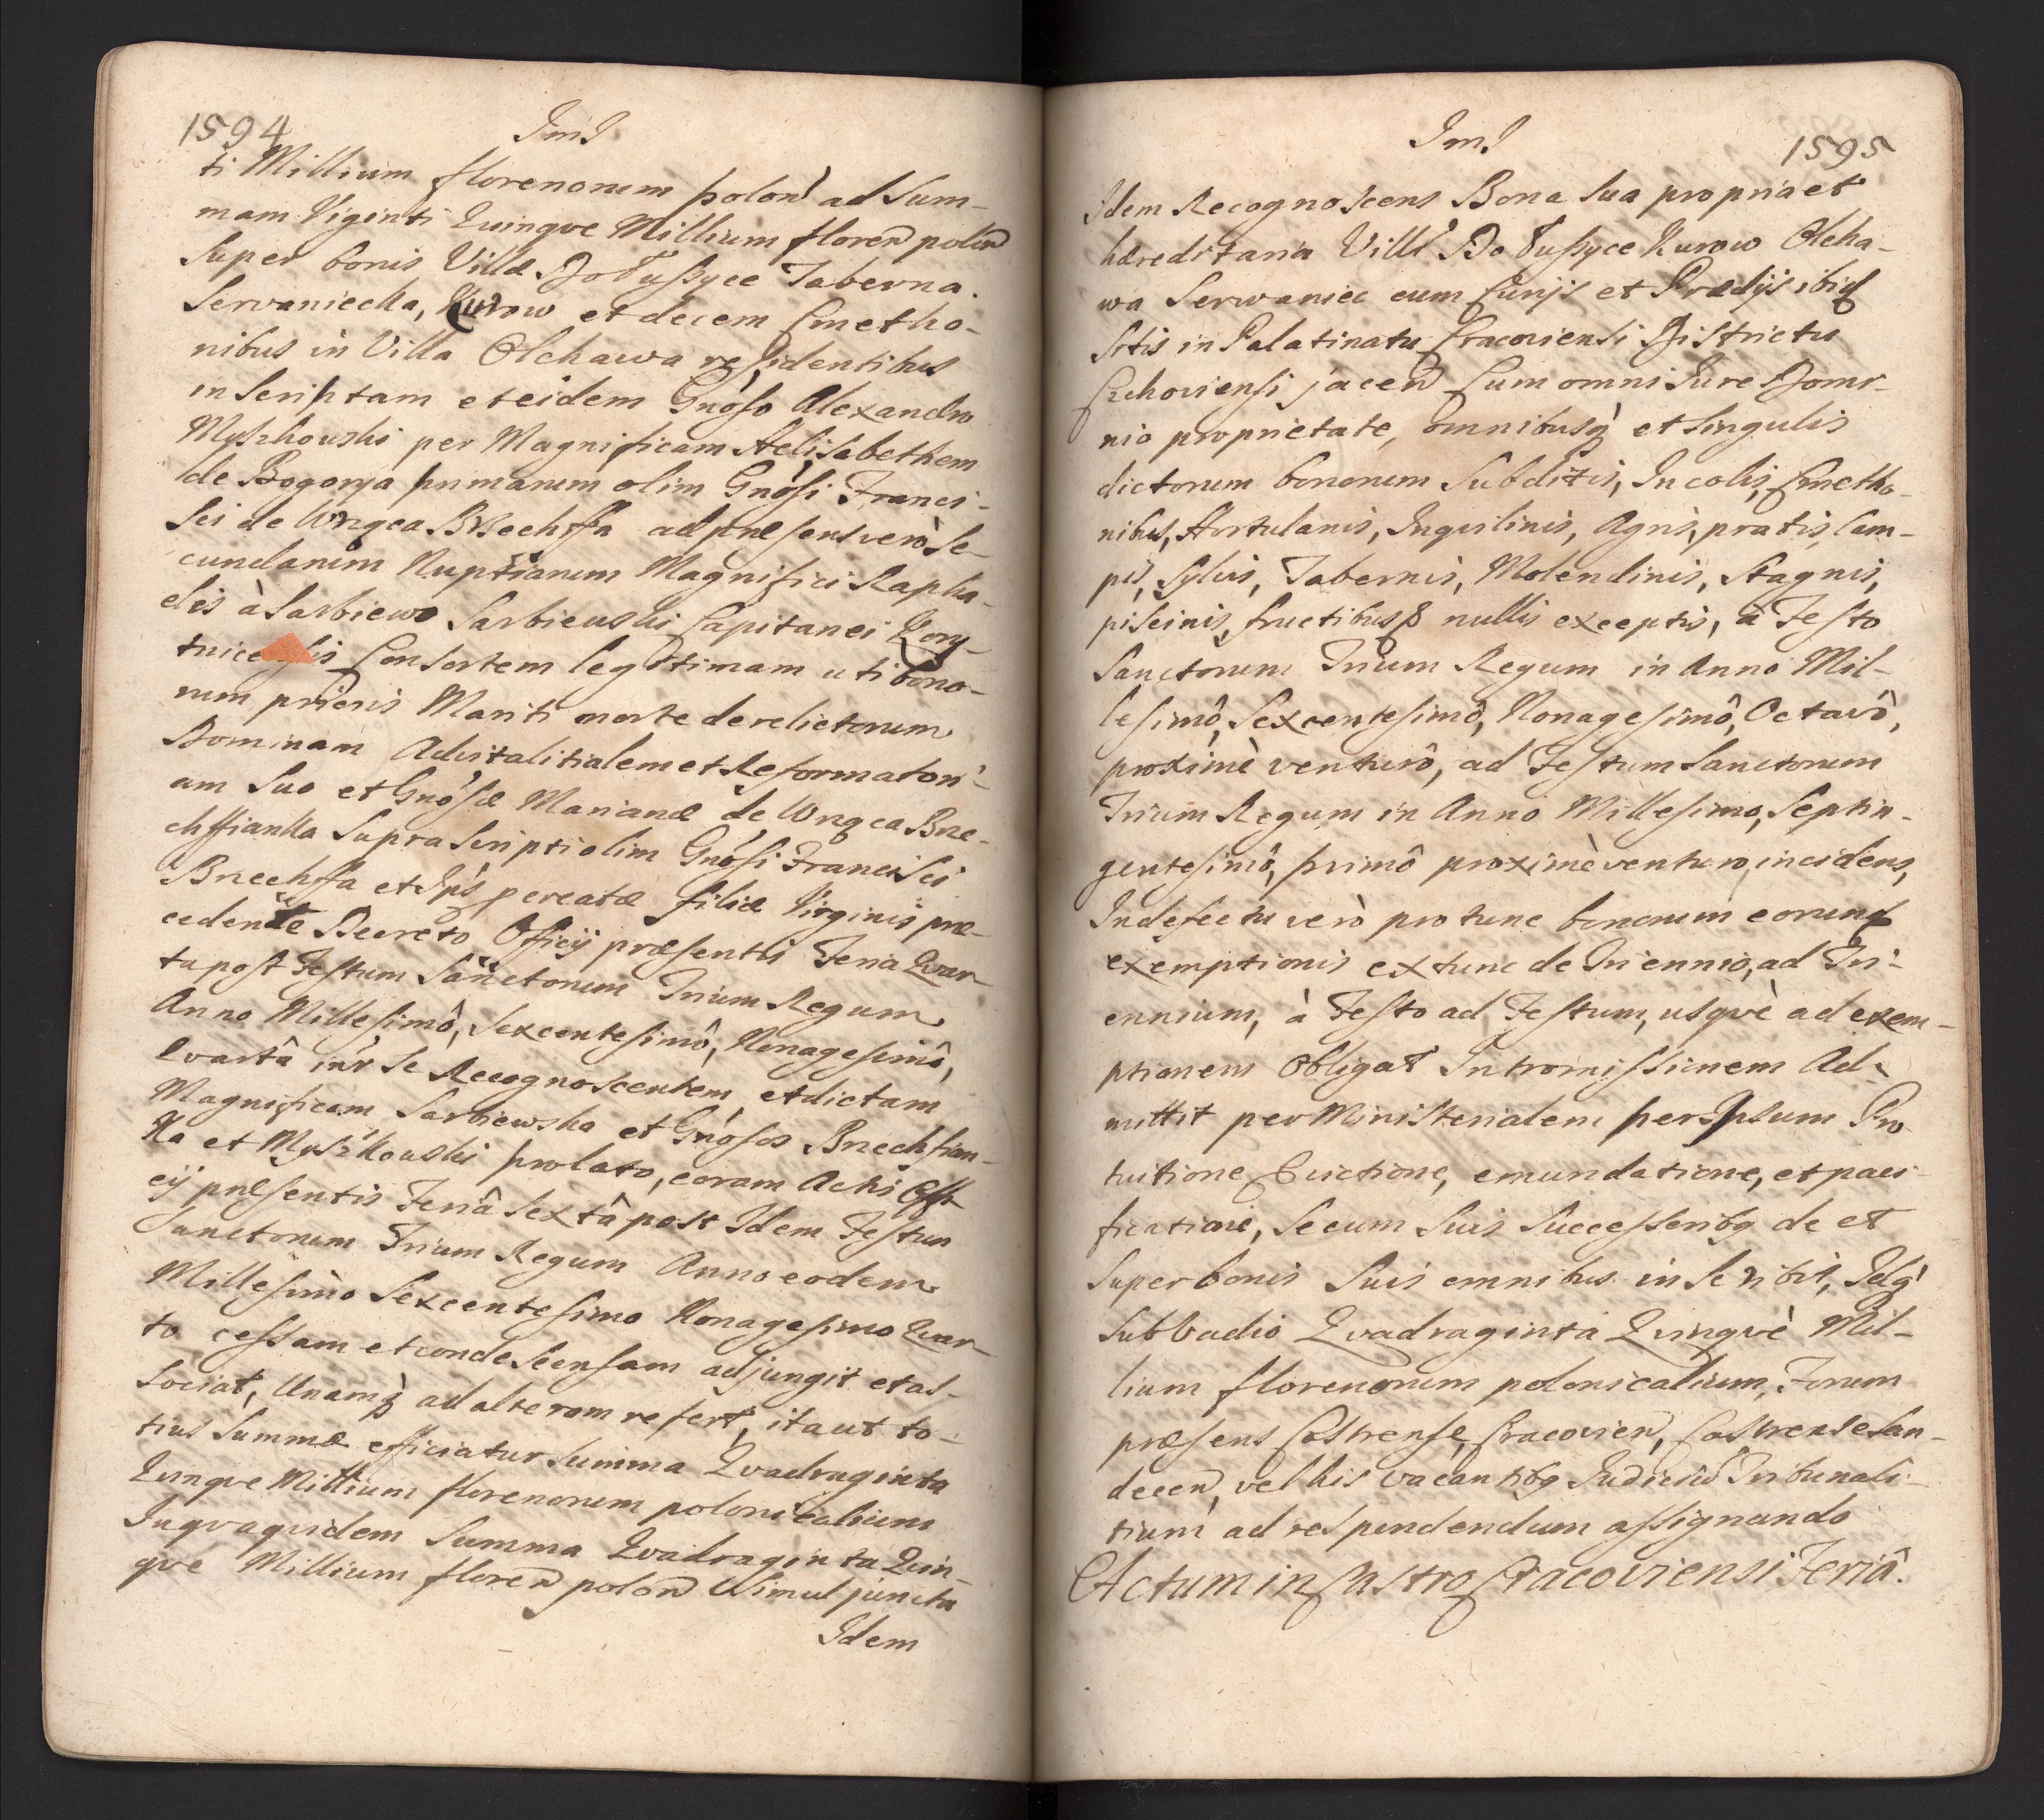 1594
ImJ
ti Millium florenorum polon̄ ad Sum-
mam Viginti Quinqve Millium floren polon
Super bonis Villæ Dołuszyce Taberna.
Serwaniecka, Kurow et decem Cmetho-
nibus in Villa Olchawa residentibus
inscriptam et eidem Gnoso Alexandro
Myszkowski per Magnificam Helisabethem
de Bogorya primarum olim Gnosi Franci-
sci de Wrzqca Brzechffa ad præsens verò Se-
cundarum Nuptiarum Magnifici Rapha-
elis à Sarbiewo Sarbiewski Capitanei Kory-
tnicensis Consortem legitimam uti bono-
rum prioris Mariti morte derelictorum
Dominam Advitalitialem et Reformatori-
am Suo et Gnosæ Marianæ de Wrzqca Brze-
chffianka Suprascripti olim Gnosi Francisci
Brzechffa et Ips procreatæ filiæ Virginis præ-
cedente Decreto Officij præsentis Feria Qvar-
ta post Festum Sanctorum Trium Regum
Anno Millesimô, Sexcentesimô, Nonagesimô,
Qvartâ intr Se Recognoscentem et dictam
Magnificam Sarbiewska et Gnosos Brzechfian-
ka et Myszkowski prolato, coram Actis Offi-
cij præsentis Feriâ Sextâ post Idem Festum
Sanctorum Trium Regum Anno eodem
Millesimo Sexcentesimo Nonagesimo Qvar-
to cessam et condescensam adjungit et as-
sociat, Unamq ad alteram refert, ita ut to-
tius Summæ efficiatur Summa Qvadraginta
Qvinqve Millium florenorum polonicalium
In qva qvidem Summa Qvadraginta Qvin-
qve Millium floren polon Simul juncta
Idem
ImJ
1595
Idem Recognoscens Bona Sua propria et
hæreditaria Vills Dołuszyce Kurow Olcha-
wa Serwaniec cum Curijs et Prædijs ibid
Sitis in Palatinatu Cracoviensi Districtu
Czchoviensi jacen Cum omni Iure Domi-
nio proprietate, omnibusq et Singulis
dictorum bonorum Subditis, Incolis, Cmetho-
nibus, Hortulanis, Inqvilinis, Agris, pratis, Cam-
pis, Sylvis, Tabernis, Molendinis, Stagnis,
piscinis, fructibusq nullis exceptis, à Festo
Sanctorum Trium Regum in Anno Mil-
lesimô, Sexcentesimô, Nonagesimô, Octavô,
proximè venturô, ad Festum Sanctorum
Trium Regum in Anno Millesimo, Septin-
gentesimô, primô proximè venturo, incidens,
In defectu verò pro tunc bonorum eorund
exemptionis ex tunc de Triennio, ad Tri-
ennium, à Festo ad Festum, usqvè ad exem-
ptionem Obligat Intromissionem Ad-
mittit per Ministerialem per Ipsum Pro
tuitione Evictione, emundatione, et paci-
ficatione, Se cum Suis Successoribq de et
Super bonis Suis omnibus inscribit, Idq
Sub Vadio Qvadraginta Qvinqvè Mil-
lium florenorum polonicalium, Forum
præsens Castrense Cracovien, Castrense San-
decen, vel his vacantibq Judiciu Tribunali-
tium ad respondendum assignando
Actum in Castro Cracoviensi Feriâ.